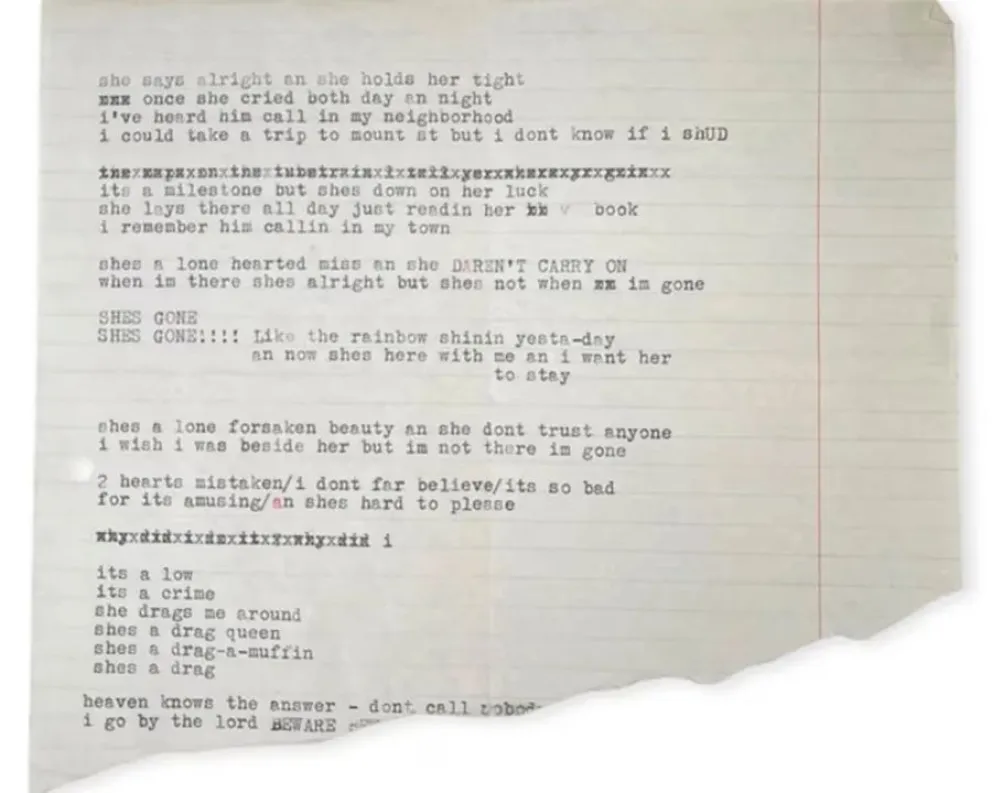 she says alright an she holds her tight
once she cried both day an night
i've heard him call in my neighborhood
i could take a trip to mount st but i dont know if i shUD
its a milestone but shes down on her luck
she lays there all day just readin her book
i remember him callin in my town
shes a lone hearted miss an she DAREN'T CARRY ON
when im there shes alright but shes not when im gone
SHES GONE
SHES GONE!!!! Like the rainbow shinin yesta-day
an now shes here with me an i want her
to stay
shes a lone forsaken beauty an she dont trust anyone
i wish i was beside her but im not there im gone
2 hearts mistaken/i dont far believe/its so bad
for its amusing/an shes hard to plesse
why did i do it? why did i
its a low
its a crime
she drags me around
shes a drag queen
shes a drag-a-muffin
shes a drag
heaven knows the answer - dont call
i go by the lord BEWARE